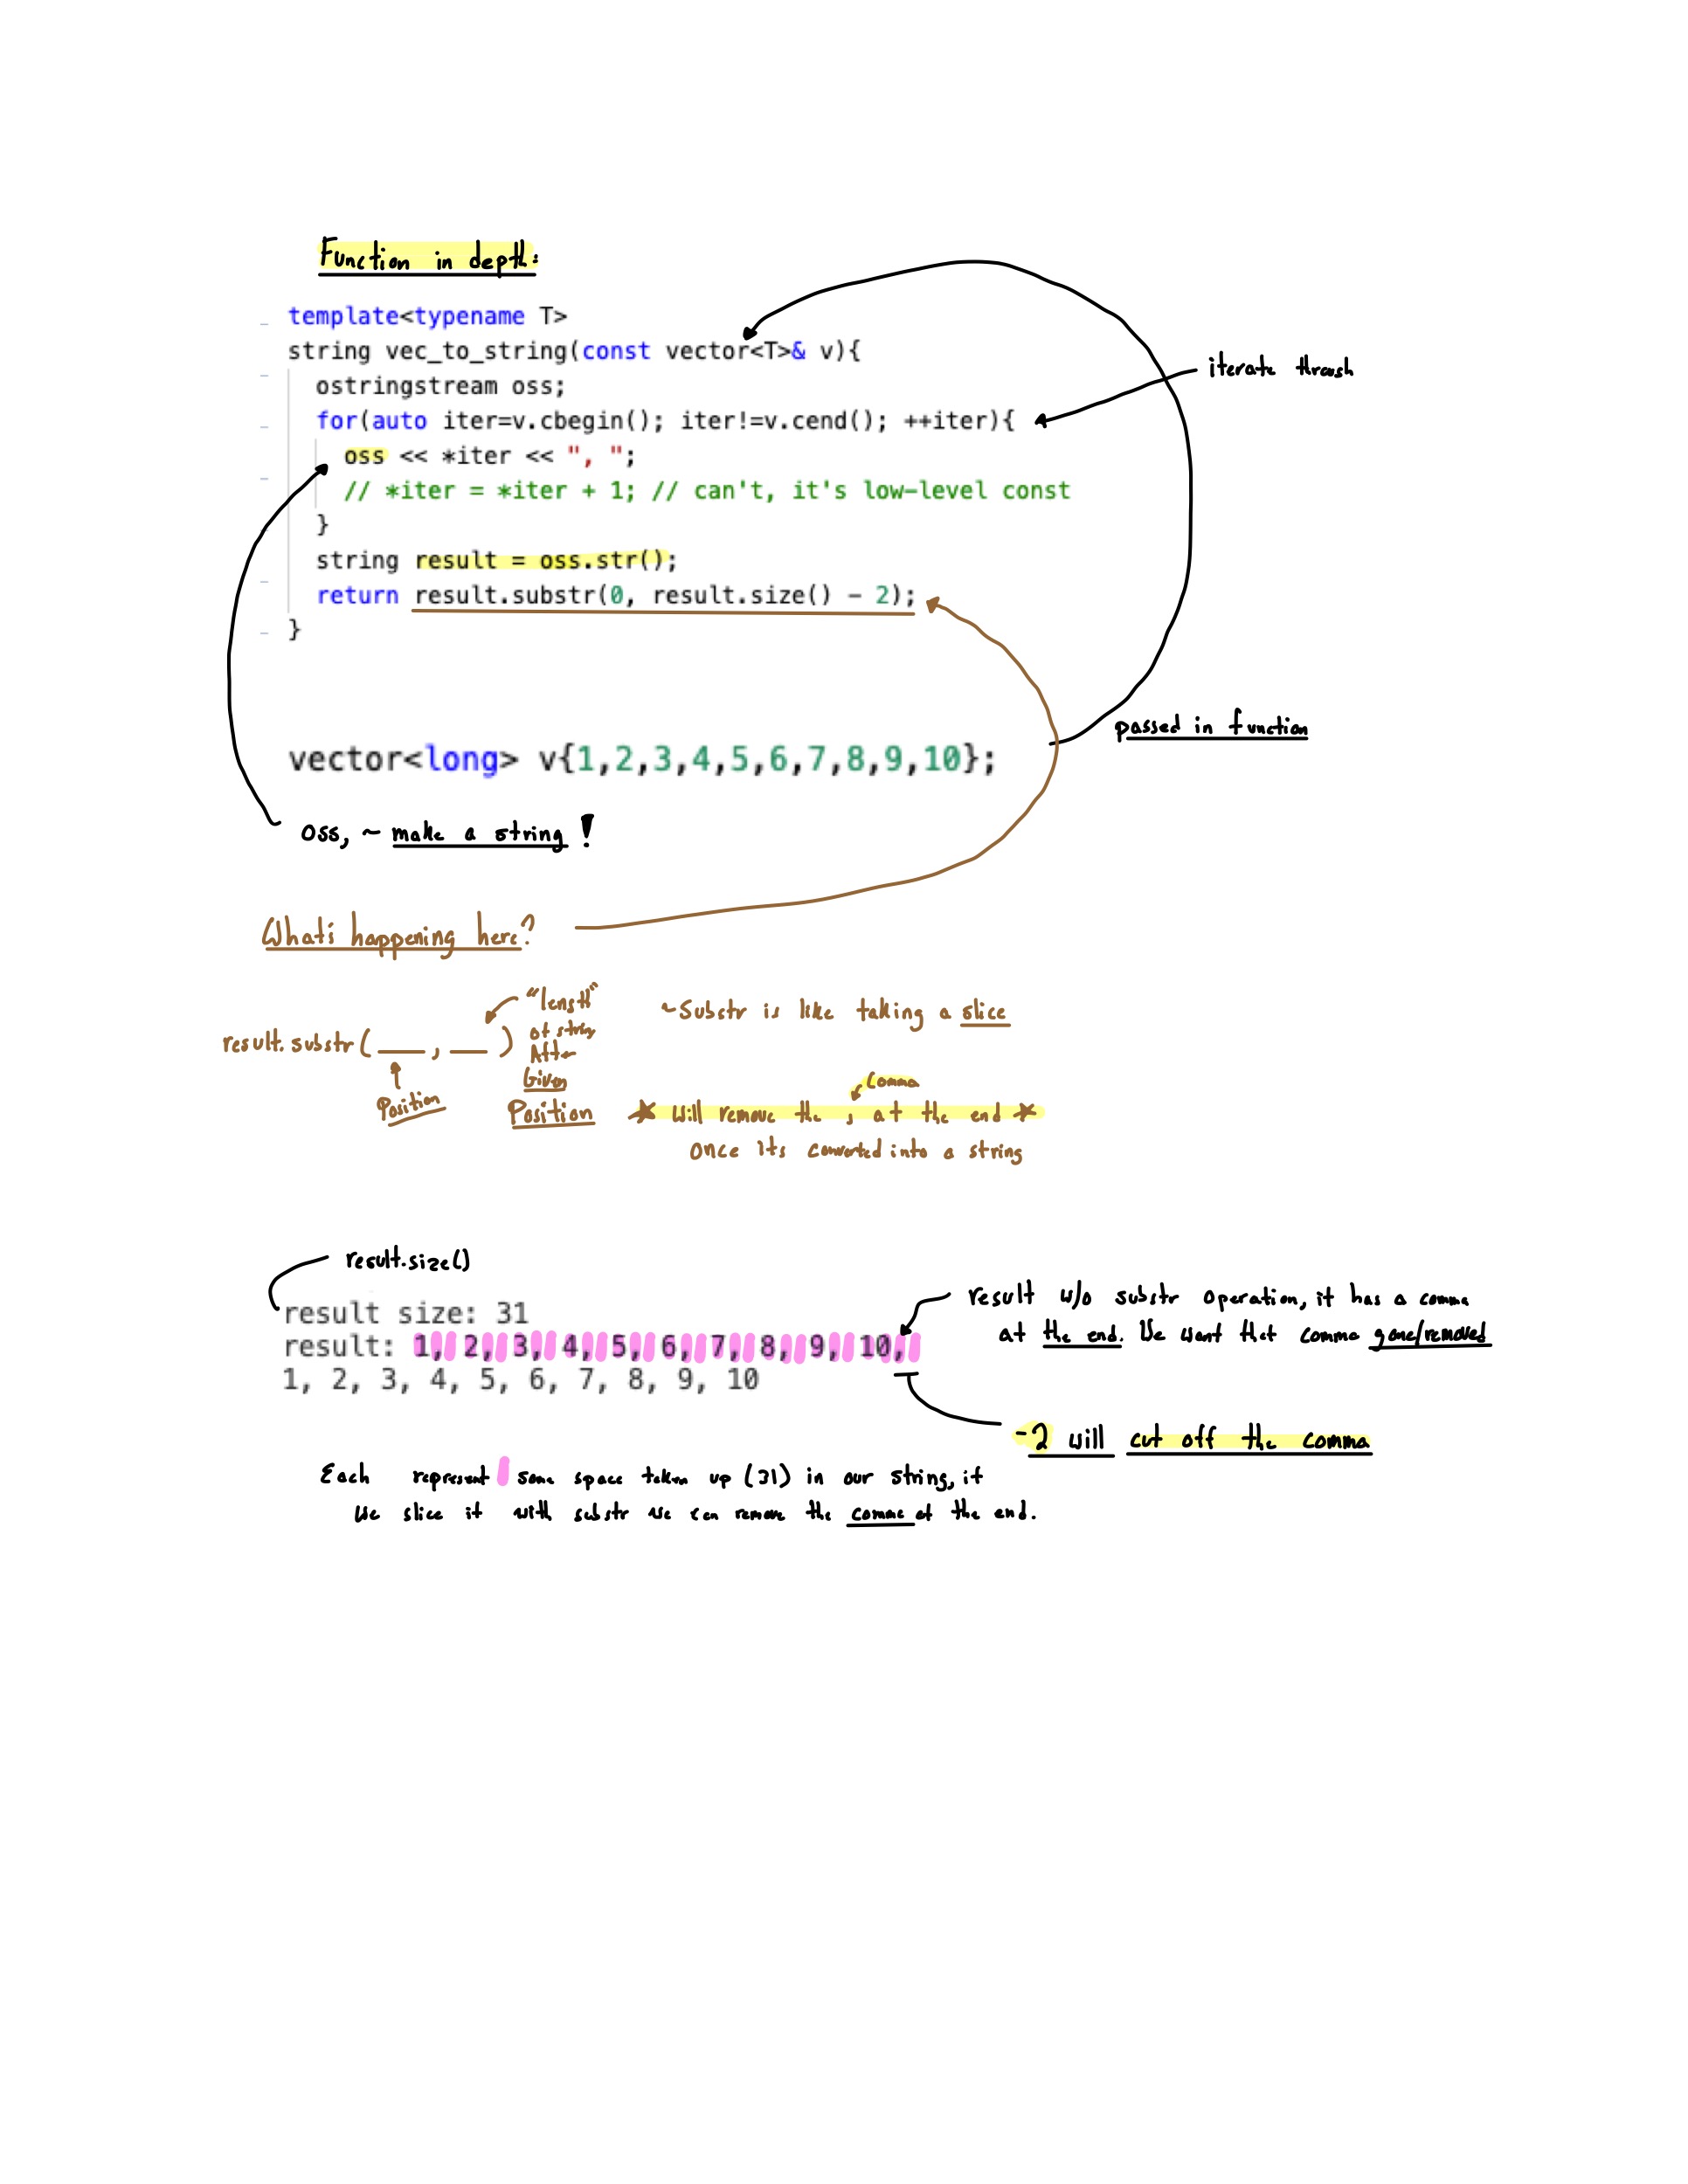 Function in depth:
template<typename T>
string vec_to_string(const vector<T>& v){
ostringstream oss;
for(auto iter=v.cbegin(); iter!=v.cend(); ++iter){
iterate through
oss << *iter << ", ";
// *iter = *iter + 1; // can't, it's low-level const
}
string result = oss.str();
return result.substr(0, result.size() - 2);
}
passed in function
vector<long> v{1,2,3,4,5,6,7,8,9,10};
oss, ~ make a string !
What's happening here?
result.substr( ___ , ___ )
Position
"length"
of string
After
Given
Position
~Substr is like taking a slice
Comma
★ Will remove the , at the end ★
once its converted into a string
result.size()
result size: 31
result: 1, 2, 3, 4, 5, 6, 7, 8, 9, 10,
1, 2, 3, 4, 5, 6, 7, 8, 9, 10
result w/o substr operation, it has a comma
at the end. We want that comma gone/removed
-2 will cut off the comma
Each represent some space taken up (31) in our string, if
we slice it with substr we can remove the comma at the end.